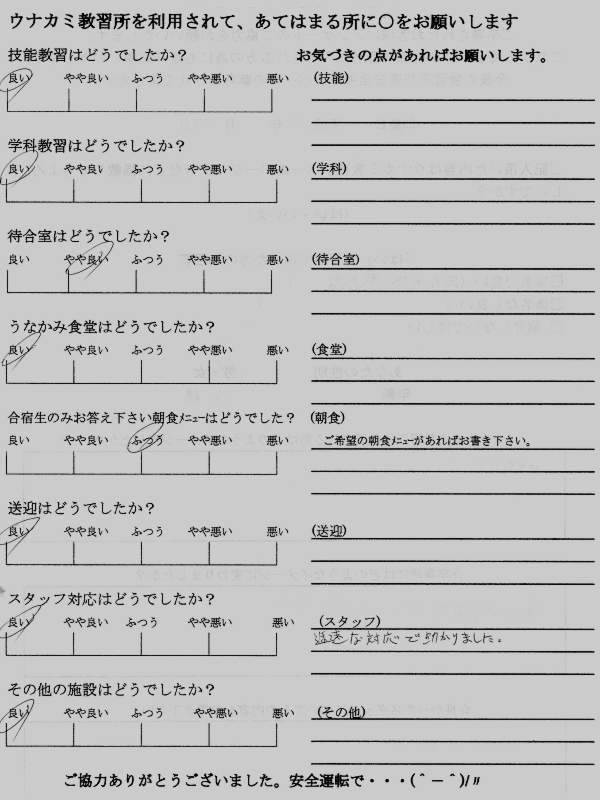 ウナカミ教習所を利用されて、あてはまる所に○をお願いします
技能教習はどうでしたか？
お気づきの点があればお願いします。
良い やや良い ふつう やや悪い 悪い (技能)
学科教習はどうでしたか？
良い やや良い ふつう やや悪い 悪い (学科)
待合室はどうでしたか？
良い やや良い ふつう やや悪い 悪い (待合室)
うなかみ食堂はどうでしたか？
良い やや良い ふつう やや悪い 悪い (食堂)
合宿生のみお答え下さい朝食ﾒﾆｭｰはどうでしたか？ (朝食)
良い やや良い ふつう やや悪い 悪い ご希望の朝食ﾒﾆｭｰがあればお書き下さい。
送迎はどうでしたか？
良い やや良い ふつう やや悪い 悪い (送迎)
スタッフ対応はどうでしたか？
良い やや良い ふつう やや悪い 悪い (スタッフ)
な対応で助かりました。
その他の施設はどうでしたか？
良い やや良い ふつう やや悪い 悪い (その他)
ご協力ありがとうございました。安全運転で・・・(＾－＾)/〃